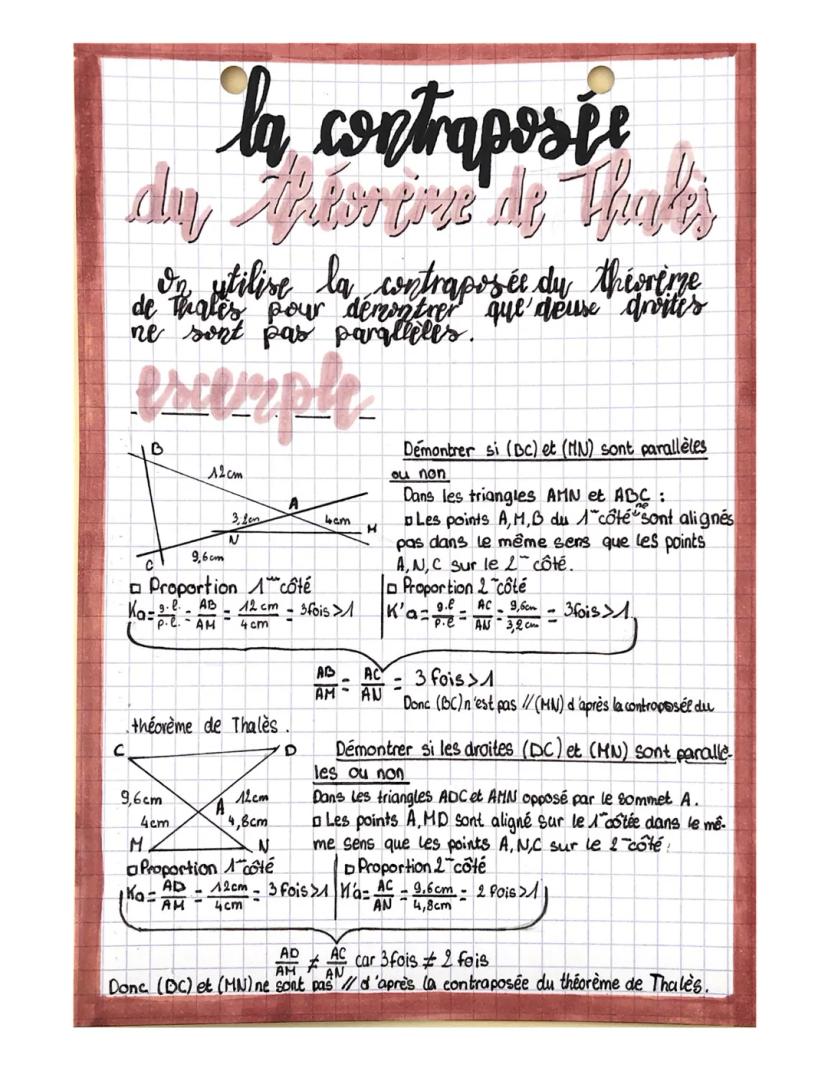 la contraposée
du théorème de Thalès
On utilise la contraposée du théorème
de Thalès pour démontrer que deuse droites
ne sont pas parallèles.
escemple
B
12cm
A
3,2cm
4cm
M
N
C
9,6cm
Démontrer si (BC) et (MN) sont parallèles
ou non
Dans les triangles AMN et ABC :
▫ Les points A,M,B du 1er côté ne sont alignés
pas dans le même sens que les points
A,N,C sur le 2e côté.
▫ Proportion 1er côté
Ka = g.l./p.l. = AB/AM = 12 cm/4 cm = 3 fois >1
▫ Proportion 2e côté
K'a = g.l/p.l = AC/AN = 9,6cm/3,2cm = 3 fois >1
AB/AM = AC/AN = 3 fois >1
Donc (BC) n'est pas // (MN) d'après la contraposée du
théorème de Thalès.
C
D
9,6cm
12cm
A
4cm
4,8cm
M
N
Démontrer si les droites (DC) et (MN) sont parallè-
les ou non
Dans les triangles ADC et AMN opposé par le sommet A.
▫ Les points A,MD sont aligné sur le 1er côtée dans le mê-
me sens que les points A,N,C sur le 2e côté :
▫ Proportion 1er côté
Ka = AD/AM = 12cm/4cm = 3 fois >1
▫ Proportion 2e côté
K'a = AC/AN = 9,6cm/4,8cm = 2 fois >1
AD/AM ≠ AC/AN car 3 fois ≠ 2 fois
Donc (DC) et (MN) ne sont pas // d'après la contraposée du théorème de Thalès.